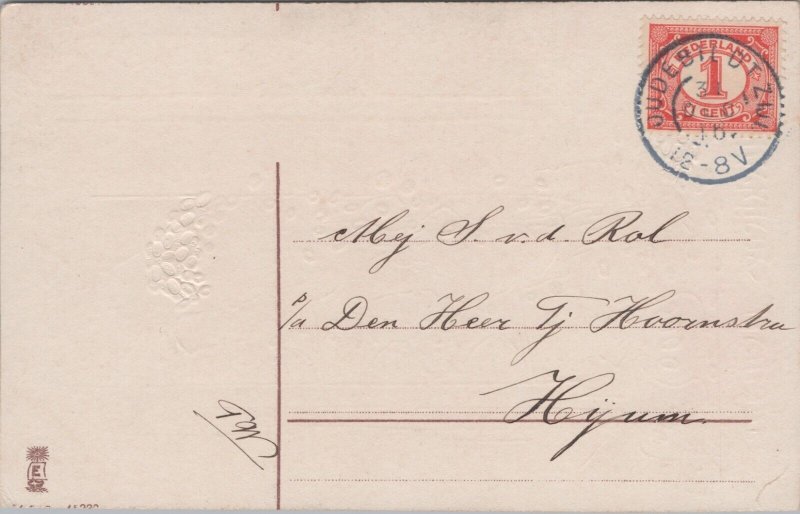 NEDERLAND
1
CENT
OUDEBILDTZIJL
12-8V
Mej S. v. d. Rol
p/a Den Heer Tj Hoornstra
Hijum.
E